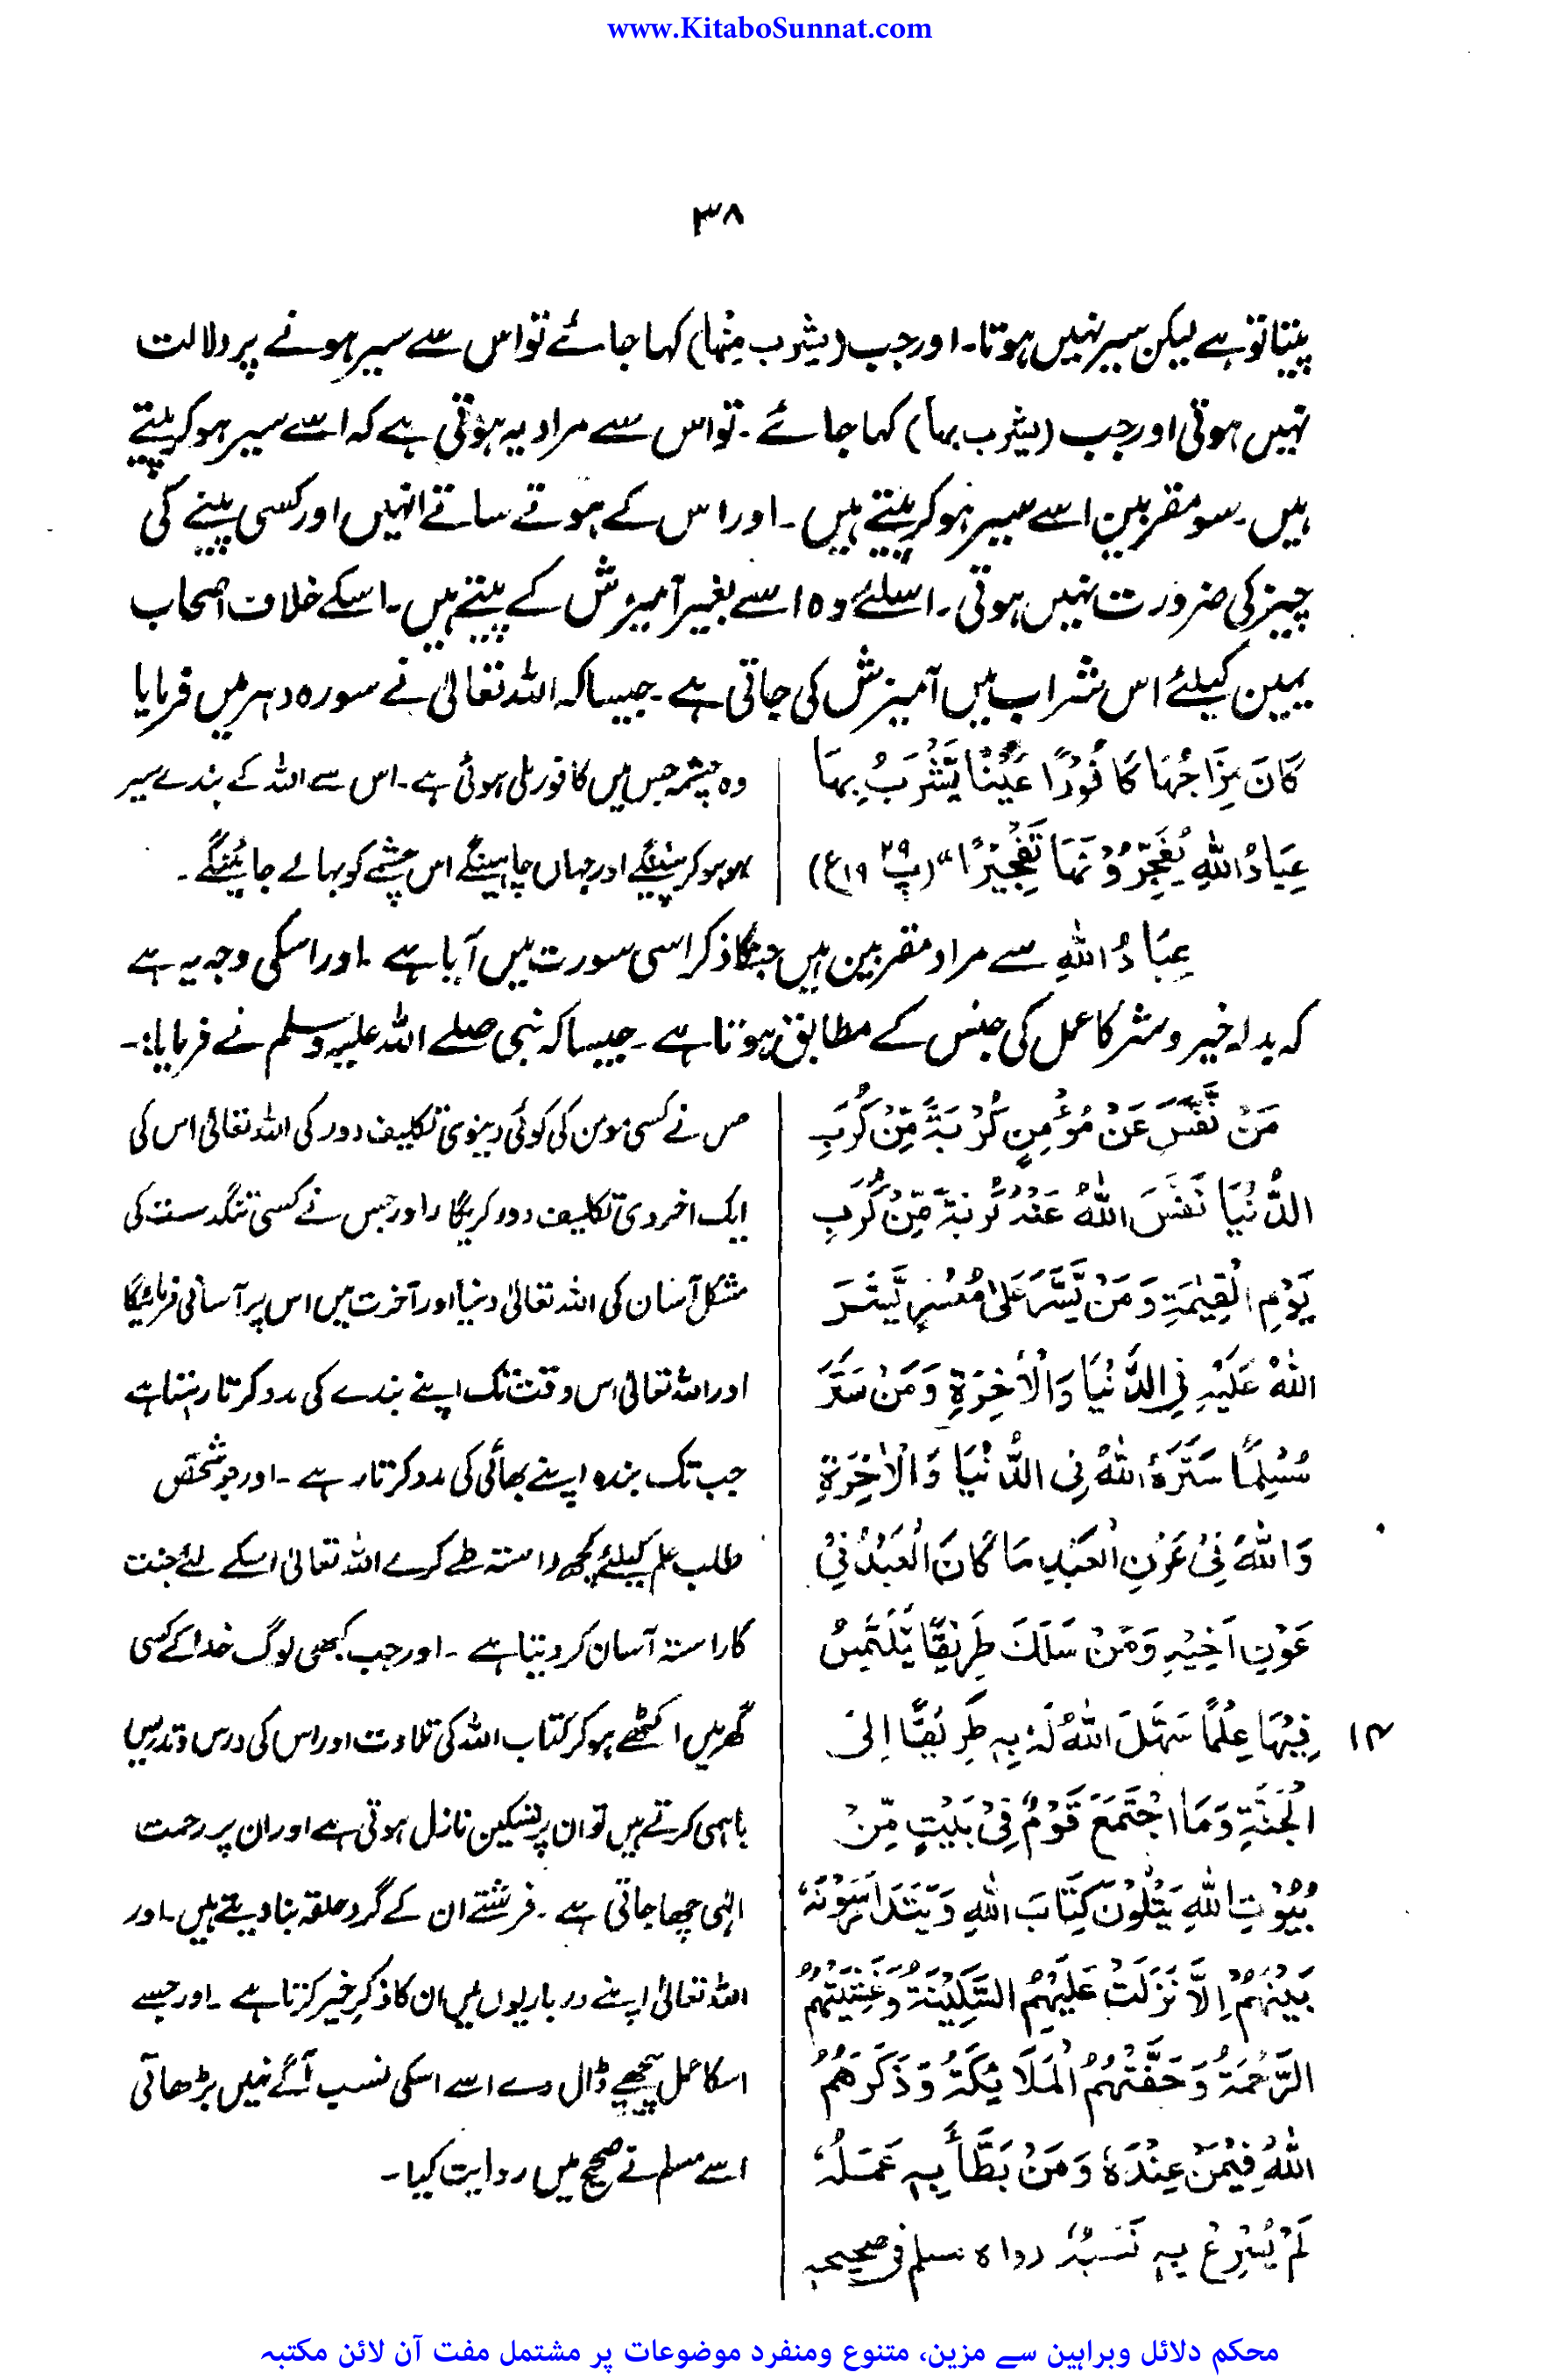 www.KitaboSunnat.com
۳۸
پیتا تو ہے لیکن سیر نہیں ہوتا۔ اور جب (یشرب مِنْہا) کہا جائے تو اس سے سیر ہونے پر دلالت
نہیں ہوتی اور جب (یشرب بہا) کہا جائے۔ تو اس سے مراد یہ ہوتی ہے کہ اسے سیر ہو کر پیتے
ہیں۔ سو مقربین اسے سیر ہو کر پیتے ہیں۔ اور اس کے ہوتے ساتے انہیں اور کسی پینے کی
چیز کی ضرورت نہیں ہوتی۔ اسلئے وہ اسے بغیر آمیزش کے پیتے ہیں۔ اسکے خلاف اصحاب
یمین کیلئے اس شراب میں آمیزش کی جاتی ہے۔ جیسا کہ اللہ تعالیٰ نے سورہ دہر میں فرمایا
كَانَ مِزَاجُهَا كَافُوْرًا عَيْنًا يَّشْرَبُ بِهَا
عِبَادُ اللهِ يُفَجِّرُوْنَهَا تَفْجِيْرًا“ (پ ۲۹ ع۱۹)
وہ چشمہ جس میں کافور ملی ہوئی ہے۔ اس سے اللہ کے بندے سیر
ہو ہو کر پئینگے اور جہاں چاہینگے اس چشمے کو بہالے جائینگے۔
عِبَادُ اللهِ سے مراد مقربین ہیں جنکا ذکر اسی سورت میں آیا ہے۔ اور اسکی وجہ یہ ہے
کہ بدلہ خیر و شر کا عمل کی جنس کے مطابق ہوتا ہے۔ جیسا کہ نبی صلے اللہ علیہ وسلم نے فرمایا:۔
مَنْ نَفَّسَ عَنْ مُؤْمِنٍ كُرْبَةً مِّنْ كُرَبِ
الدُّنْيَا نَفَّسَ اللهُ عَنْهُ كُرْبَةً مِّنْ كُرَبِ
يَوْمِ الْقِيٰمَةِ وَمَنْ يَّسَّرَ عَلٰى مُعْسِرٍ يَّسَّرَ
اللهُ عَلَيْهِ فِي الدُّنْيَا وَالْاٰخِرَةِ وَمَنْ سَتَرَ
مُسْلِمًا سَتَرَهُ اللهُ فِي الدُّنْيَا وَالْاٰخِرَةِ
وَاللهُ فِيْ عَوْنِ الْعَبْدِ مَا كَانَ الْعَبْدُ فِيْ
عَوْنِ اَخِيْهِ وَمَنْ سَلَكَ طَرِيْقًا يَّلْتَمِسُ
فِيْهَا عِلْمًا سَهَّلَ اللهُ لَهٗ بِهٖ طَرِيْقًا اِلَى
۱۴
الْجَنَّةِ وَمَا اجْتَمَعَ قَوْمٌ فِيْ بَيْتٍ مِّنْ
بُيُوْتِ اللهِ يَتْلُوْنَ كِتَابَ اللهِ وَيَتَدَارَسُوْنَهٗ
بَيْنَهُمْ اِلَّا نَزَلَتْ عَلَيْهِمُ السَّكِيْنَةُ وَغَشِيَتْهُمُ
الرَّحْمَةُ وَحَفَّتْهُمُ الْمَلَائِكَةُ وَذَكَرَهُمُ
اللهُ فِيْمَنْ عِنْدَهٗ وَمَنْ بَطَّأَ بِهٖ عَمَلُهٗ
لَمْ يُسْرِعْ بِهٖ نَسَبُهٗ رواہ مسلم فی صحیحہ
جس نے کسی مومن کی کوئی دینوی تکلیف دور کی اللہ تعالیٰ اس کی
ایک اخروی تکلیف دور کریگا اور جس نے کسی تنگدست کی
مشکل آسان کی اللہ تعالیٰ دنیا اور آخرت میں اس پر آسانی فرمائیگا
اور اللہ تعالیٰ اس وقت تک اپنے بندے کی مدد کرتا رہتا ہے
جب تک بندہ اپنے بھائی کی مدد کرتا رہے۔ اور جو شخص
طلب علم کیلئے کچھ راستہ طے کرے اللہ تعالیٰ اسکے لئے جنت
کا راستہ آسان کر دیتا ہے۔ اور جب کبھی لوگ خدا کے کسی
گھر میں اکٹھے ہو کر کتاب اللہ کی تلاوت اور اس کی درس و تدریس
باہمی کرتے ہیں تو ان پر تسکین نازل ہوتی ہے اور ان پر رحمت
الٰہی چھا جاتی ہے۔ فرشتے ان کے گرد حلقہ بنا دیتے ہیں۔ اور
اللہ تعالیٰ اپنے درباریوں میں ان کا ذکرِ خیر کرتا ہے۔ اور جسے
اسکا عمل پیچھے ڈال دے اسے اسکی نسب آگے نہیں بڑھاتی
اسے مسلم نے صحیح میں روایت کیا۔
محکم دلائل وبراہین سے مزین، متنوع ومنفرد موضوعات پر مشتمل مفت آن لائن مکتبہ